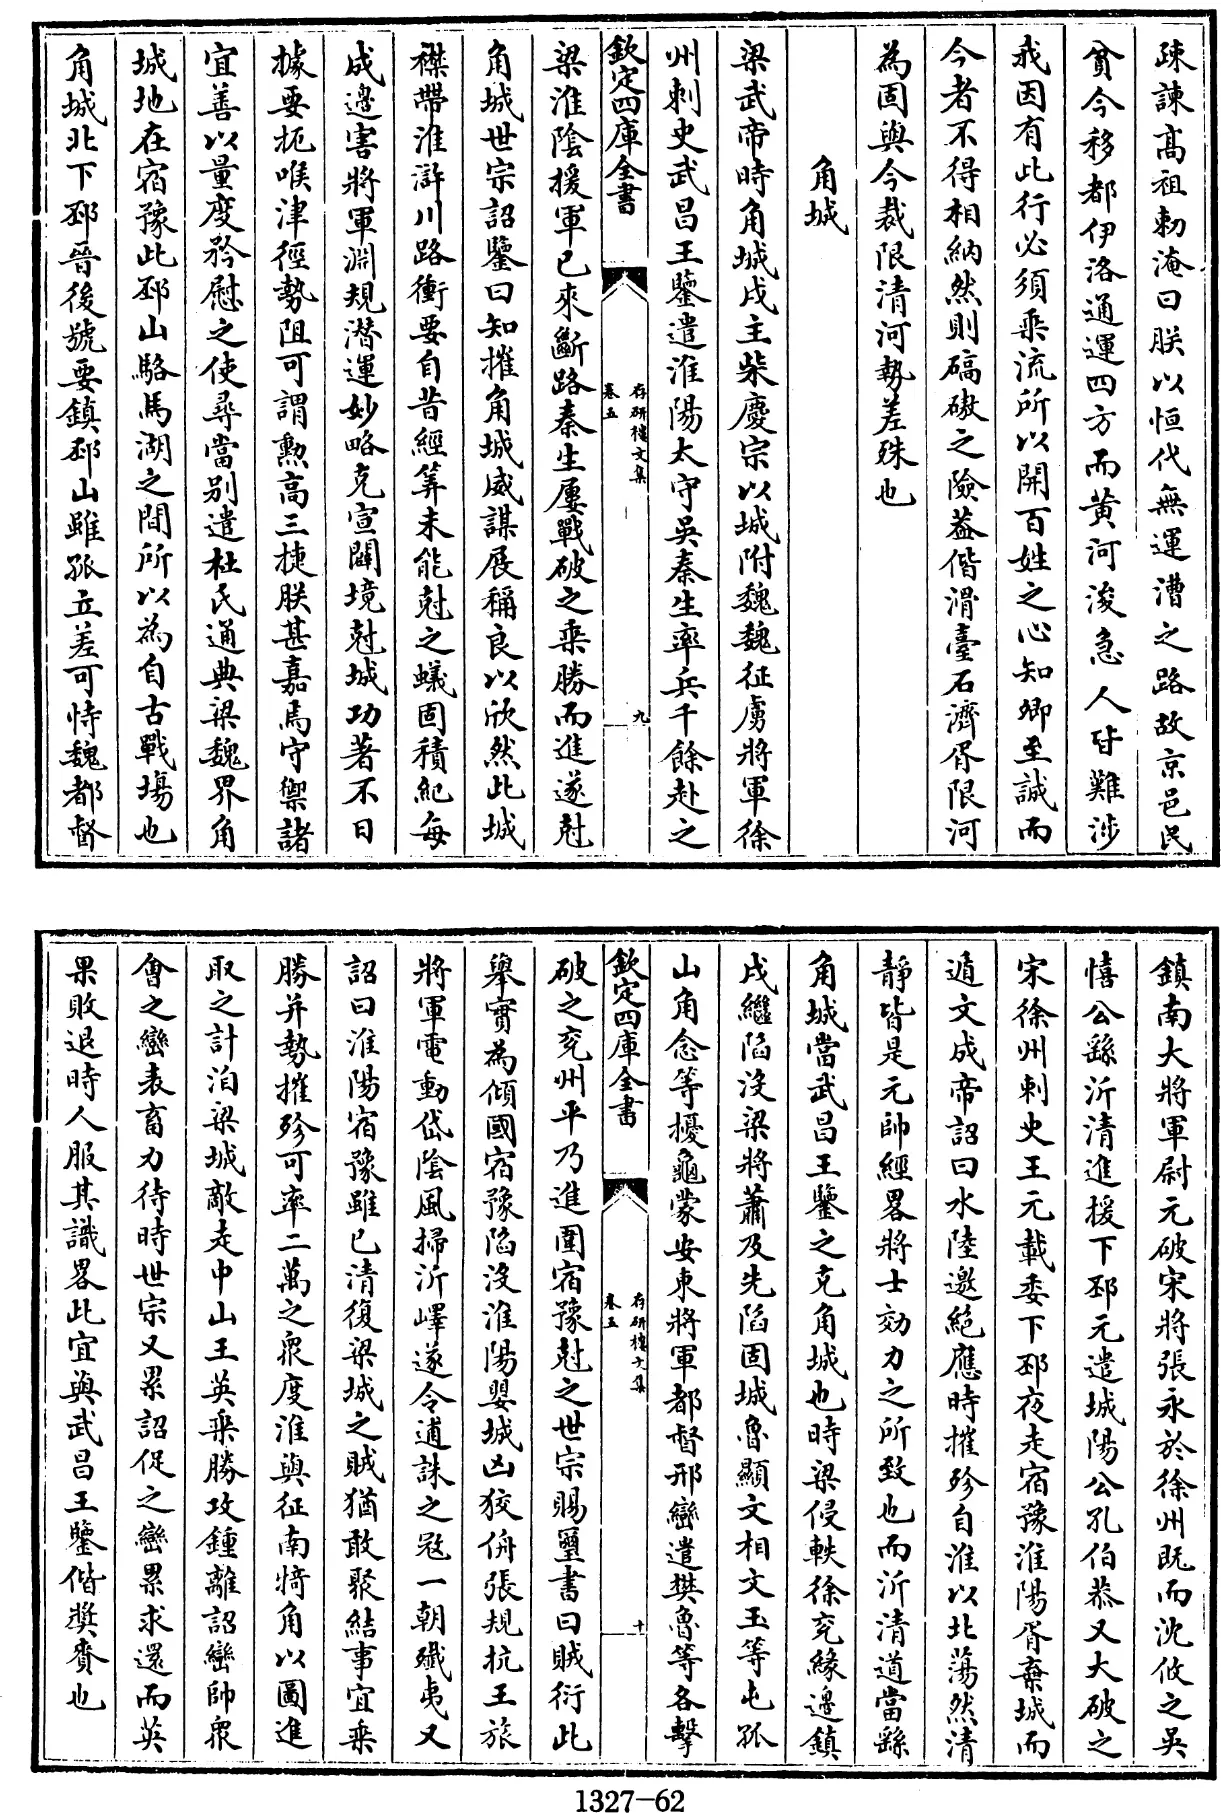 疎諌髙祖勅淹曰朕以恒代無運漕之路故京邑民
貧今移都伊洛通運四方而黄河浚急人皆難涉
我因有此行必須乘流所以開百姓之心知卿至誠而
今者不得相納然則碻磝之險葢偕滑臺石濟胥限河
為固與今裁限清河勢差殊也
角城
梁武帝時角城戍主柴慶宗以城附魏魏征虜將軍徐
州刺史武昌王鑒遣淮陽太守吳秦生率兵千餘赴之
欽定四庫全書
存研樓文集
卷五
九
梁淮陰援軍已來斷路秦生屢戰破之乘勝而進遂尅
角城世宗詔鑒曰知摧角城威謀展稱良以欣然此城
襟帶淮滸川路衝要自昔經筭未能尅之蟻固積紀每
成邊害將軍淵規潛運妙略克宣闢境尅城功著不日
據要扼喉津徑勢阻可謂勲高三捷朕甚嘉焉守禦諸
宜善以量度矜慰之使尋當别遣杜氏通典梁魏界角
城地在宿豫此邳山駱馬湖之間所以為自古戰塲也
角城北下邳晉後號要鎮邳山雖孤立差可恃魏都督
鎮南大將軍尉元破宋將張永於徐州既而沈攸之吳
憘公繇沂清進援下邳元遣城陽公孔伯恭又大破之
宋徐州刺史王元載委下邳夜走宿豫淮陽胥棄城而
遁文成帝詔曰水陸邀絶應時摧殄自淮以北蕩然清
靜皆是元帥經畧將士効力之所致也而沂清道當繇
角城當武昌王鑒之克角城也時梁侵軼徐兗緣邊鎮
戍繼陷沒梁將蕭及先陷固城魯顯文相文玉等屯孤
山角念等擾龜蒙安東將軍都督邢巒遣樊魯等各擊
欽定四庫全書
存研樓文集
卷五
十
破之兗州平乃進圍宿豫尅之世宗賜璽書曰賊衍此
舉實為傾國宿豫陷沒淮陽嬰城凶狡侜張規抗王旅
將軍電動岱陰風掃沂嶧遂令逋誅之冦一朝殲夷又
詔曰淮陽宿豫雖已清復梁城之賊猶敢聚結事宜乘
勝并勢摧殄可率二萬之衆度淮與征南犄角以圖進
取之計洎梁城敵走中山王英乘勝攻鍾離詔巒帥衆
會之巒表畜力待時世宗又累詔促之巒累求還而英
果敗退時人服其識畧此宜與武昌王鑒偕奬賚也
1327-62